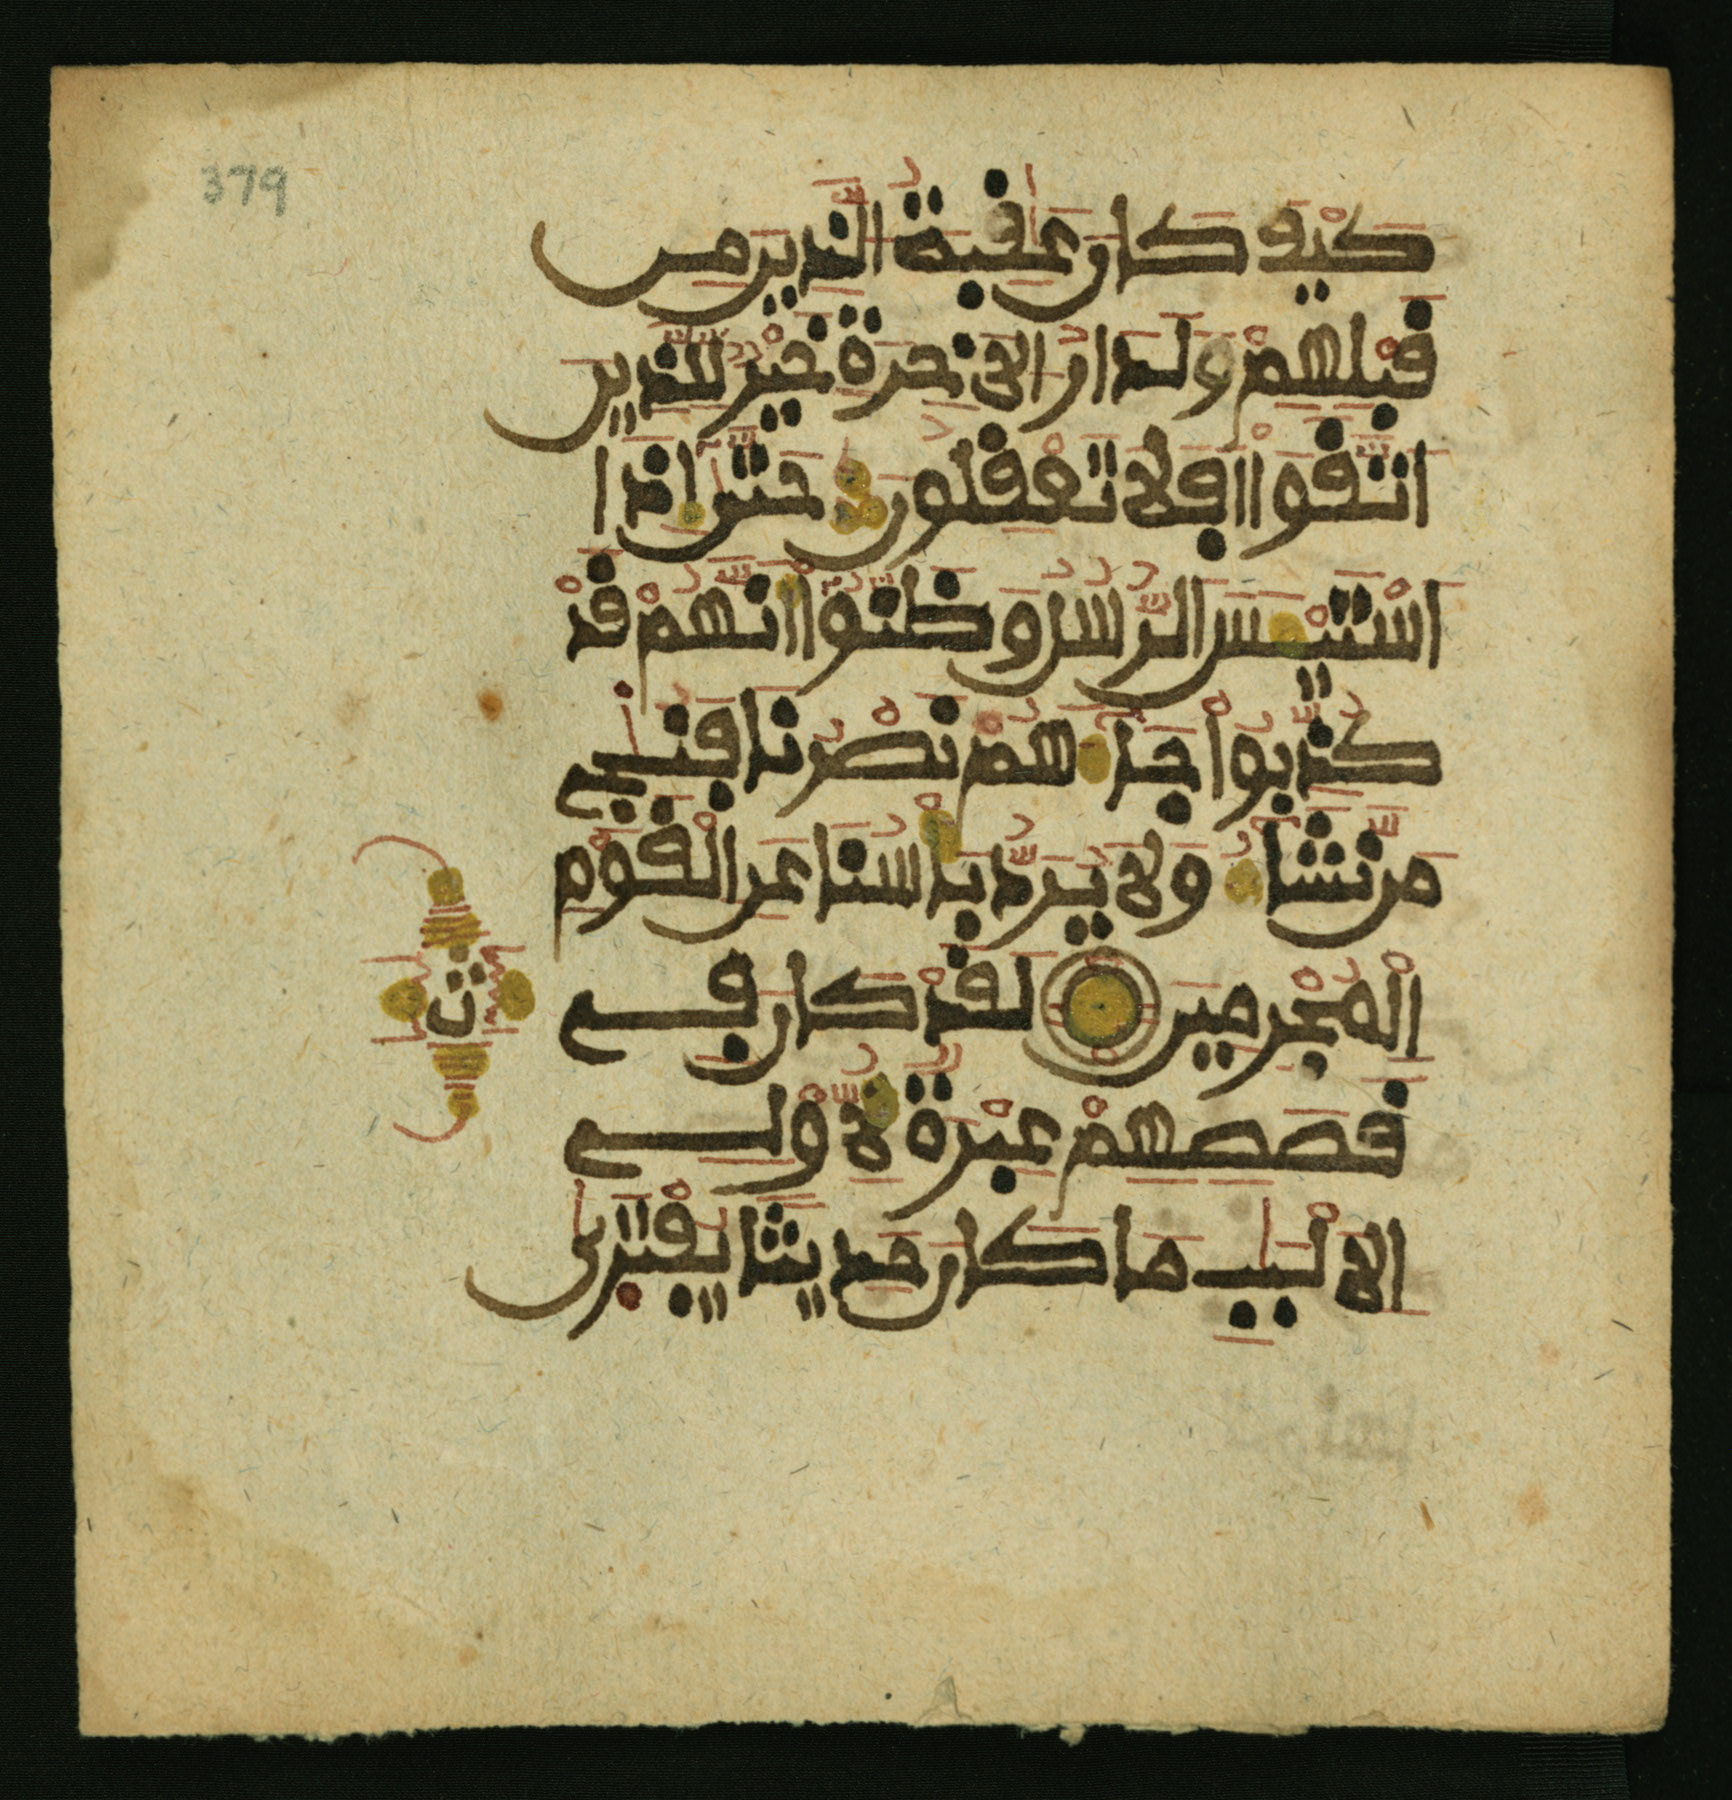 379
كيف كان عقبة الذين من
قبلهم ولدار الاخرة خير للذين
اتقوا افلا تعقلون حتى اذا
استيس الرسل وظنوا انهم قد
كذبوا جا هم نصرنا فننجي
من نشا ولا يرد باسنا عن القوم
المجرمين لقد كان في
قصصهم عبرة لاولي
الالبب ما كان حديثا يفترى